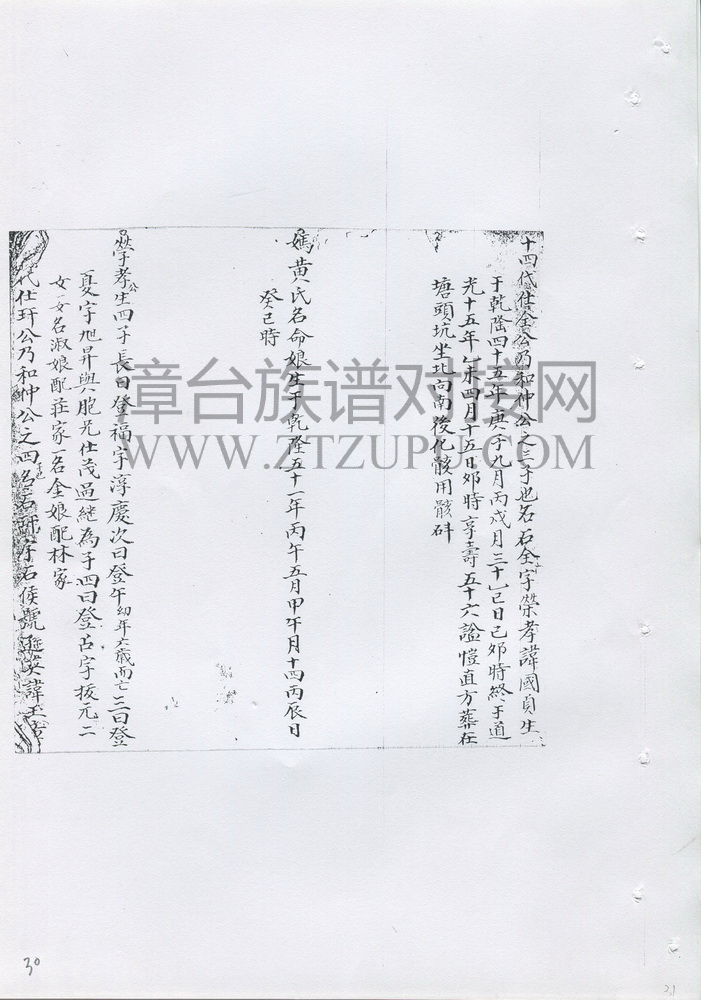 十四代仕全公乃和仲公之三子也名石全字榮孝諱國貞生
于乾隆四十五年庚子九月丙戌月三十乙巳日己卯時終于道
光十五年乙未四月十五日卯時享壽五十六謚愷直方葬在
塘頭坑坐北向南後化骸用骸砵
媽黃氏名命娘生于乾隆五十一年丙午五月甲午月十四丙辰日
癸巳時
字孝公生四子長曰登福字淳慶次曰登午幼年六歲而亡三曰登
夏字旭昇與胞兄仕茂過継為子四曰登占字拔元二
女一女名淑娘配莊家一名金娘配林家
代仕玕公乃和仲公之四子名石玕字石侯號遜英諱玉
章台族谱对接网
WWW.ZTZUPU.COM
30
21